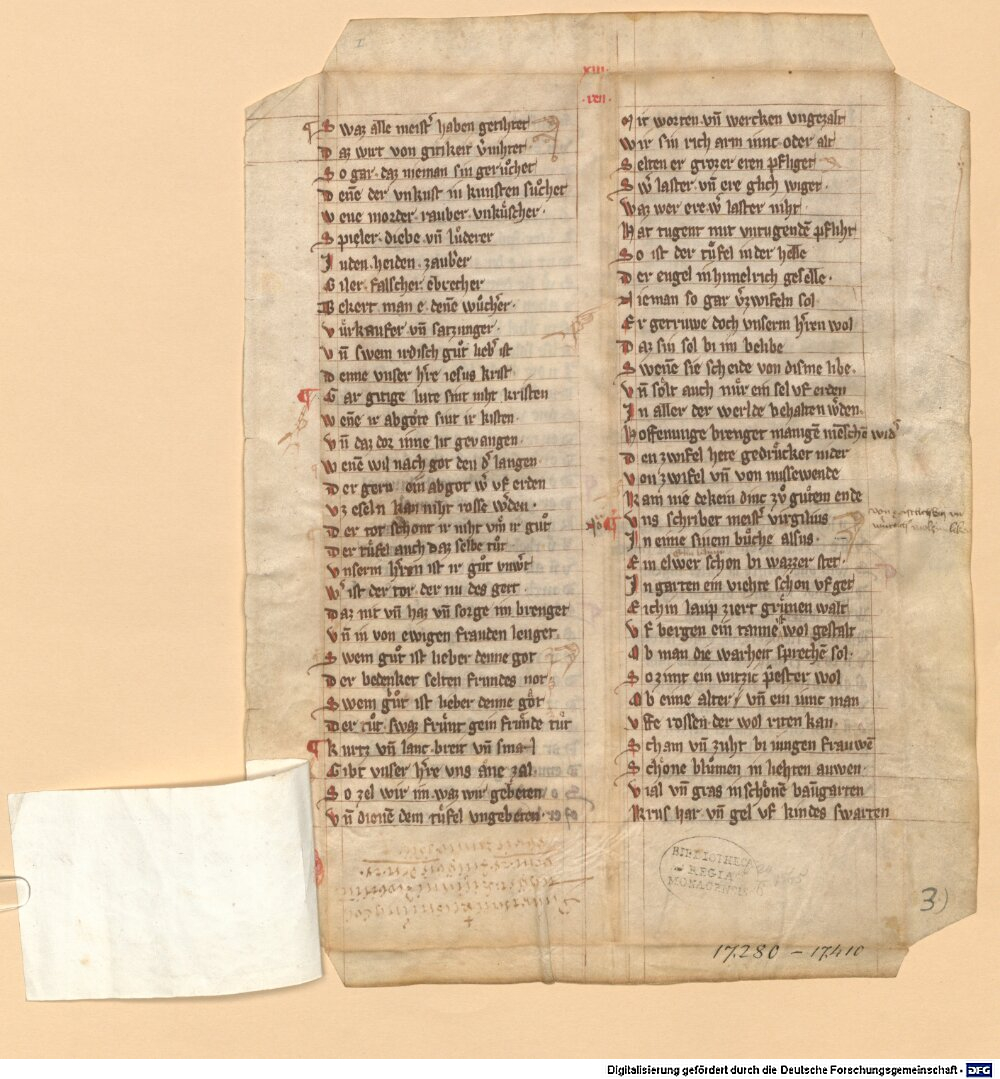 xiii.
.ren.
S waz alle meist͛ haben getihtet
D az wirt von gitikeit v͛nihtet
S o gar. daz nieman sin gerůchet
D enē der vnkust in kunsten sůchet
W ene morder. rauber. vnkúscher.
S pieler. diebe. vn̄ lůderer
I uden. heiden. zaub͛er
G iler. falscher. ebrecher
B ekert man e. denē wůch͛er.
V úrkaufer vn̄ satzunger.
V n̄ swem irdisch gůt lieb͛ ist
D enne vnser h͛re iesus krist
G ar gitige lute sint niht kristen
W enē ir abgote sint ir kisten.
V n̄ daz dor inne lit gevangen.
W enē wil nach got den d͛ langen
D er gern ein abgot w͛ vf erden
V z eseln kan niht rosse w͛den.
D er tot schont ir niht vm̄ ir gůt
D er túfel auch daz selbe tůt
V nserm h͛ren ist ir gůt vnw͛t
W͛ ist der tor. der nu des gert.
D az nit vn̄ haz vn̄ sorge im brenget
V n̄ in von ewigen frauden lenget.
S wem gůt ist lieber denne got
D er bedenket selten frundes not.
S wem gůt ist lieber denne got
D er tůt. swaz frúnt gein frúnde tůt
K urtz vn̄ lanc. breit vn̄ smal
G ibt vnser h͛re vns ane zal.
S o zel wir im. waz wir gebeten
V n̄ dienē dem túfel vngebeten.
M it worten vn̄ wercken vngezalt
W ir sin rich arm iunc oder alt
S elten er grozer eren pfliget
S w͛ laster vn̄ ere glich wiget.
W az wer ere w͛ laster niht.
H at tugent mit vntugendē pfliht
S o ist der túfel in der helle
D er engel in himelrich geselle.
N ieman so gar v͛zwifeln sol
E r getruwe doch vnserm h͛ren wol
D az sin sol bi im belibe
S wenē sie scheide von disme libe.
V n̄ sólt auch núr ein sel vf erden
I n aller der werlde behalten w͛den.
H offenunge brenget manigē mēschē wid͛
D en zwifel hete gedrúcket nider
V on zwifel vn̄ von missewende
K am nie dekein dinc zů gůtem ende
V ns schribet meist͛ virgilius
I n eime sinem bůche alsus.
E in elwer schon bi wazzer stet.
I n garten ein viehte schon vf get
E ich in laup ziert grůnen walt
V f bergen ein tanne wol gestalt
O b man die warheit sprechē sol.
S o zimt ein witzic p͛ester wol
O b eime alter / vn̄ ein iunc man
V ffe rossen der wol riten kan.
S cham vn̄ zuht bi iungen frauwē
S chóne blůmen in liehten auwen.
V ial vn̄ gras in schónē baūgarten
K rus har vn̄ gel vf kindes swarten
BIBLIOTHECA
REGIA
MONACENSIS
3)
17280 – 17410
Digitalisierung gefördert durch die Deutsche Forschungsgemeinschaft - DFG